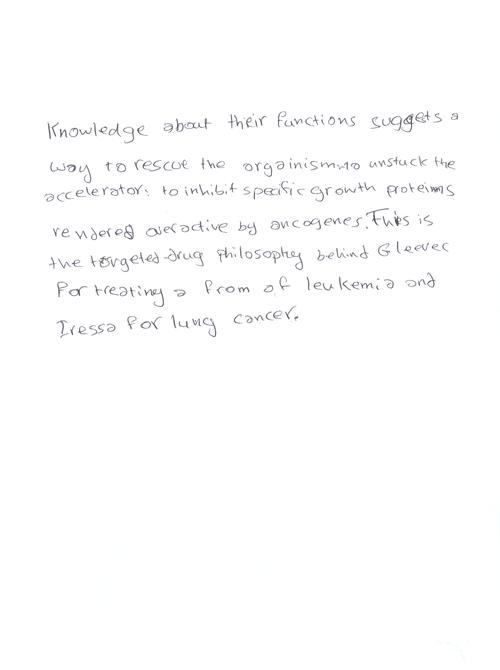 Knowledge about their functions suggests a
way to rescue the orgainism,to unstuck the
accelerator: to inhibit specific growth proteins
rendered overactive by oncogenes. This is
the targeted-drug philosophy behind Gleevec
for treating a from of leukemia and
Iressa for lung cancer.